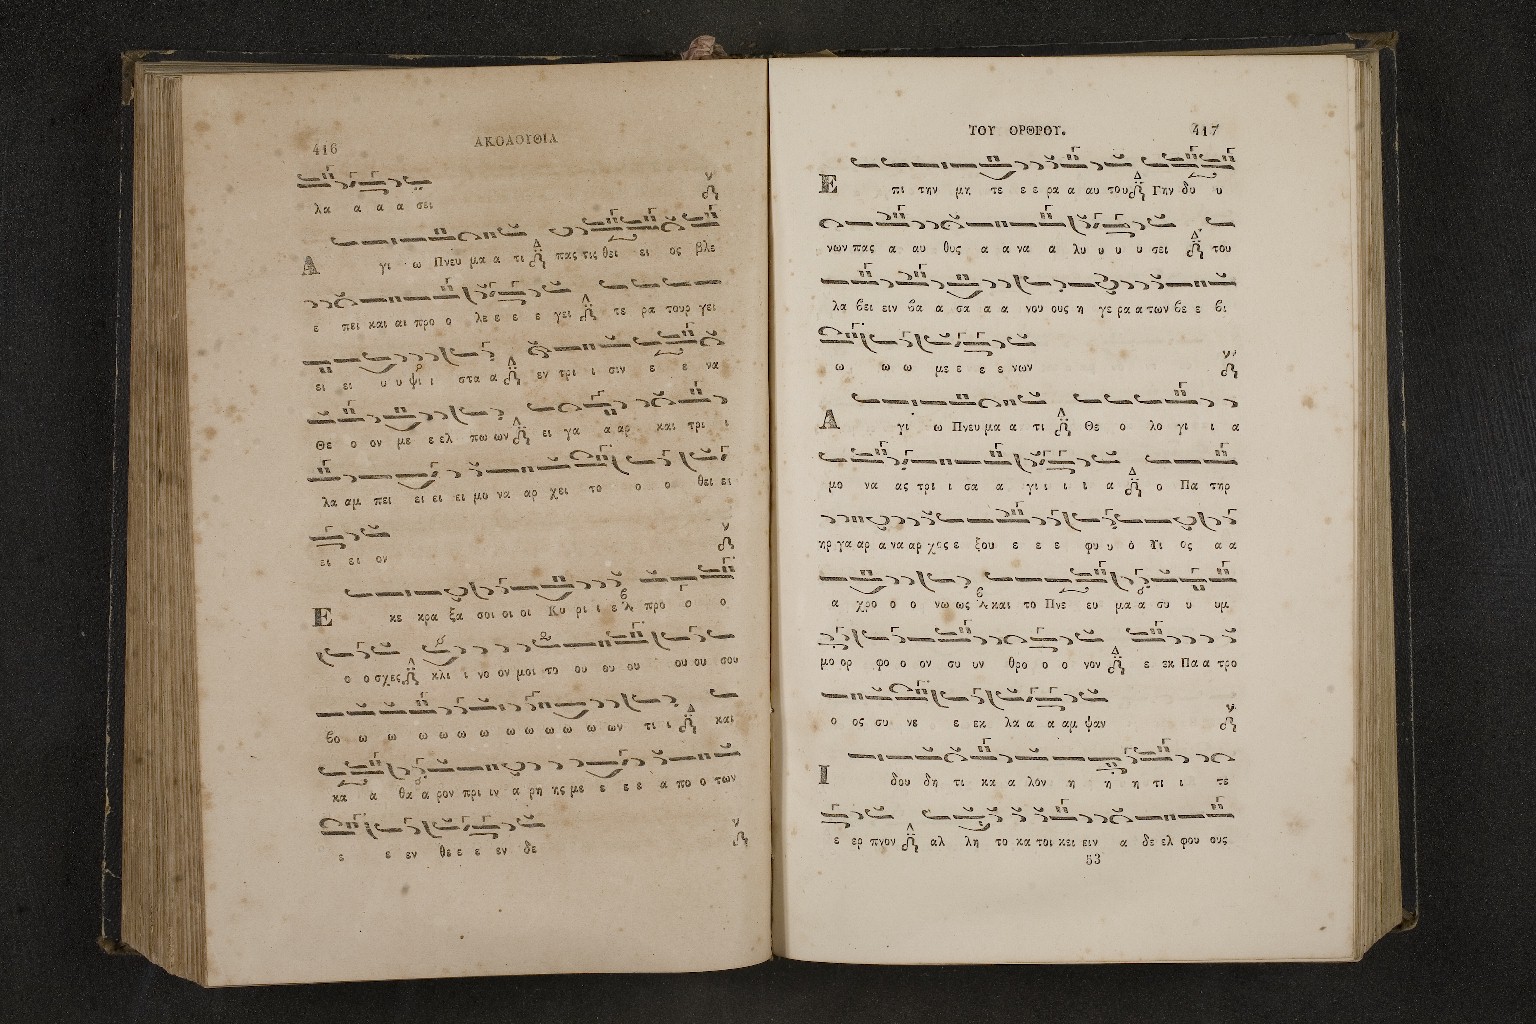 416
ΑΚΟΛΟΥΘΙΑ
λα α α α σει
Α γι ω Πνευ μα α τι πας τις θει ει ος βλε
ε πει και αι προ ο λε ε ε ε γει τε ρα τουρ γει
ει ει υ υ ψι ι στα α εν τρι ι σιν ε ε να
Θε ο ον με ε ελ πω ων ει γα α αρ και τρι ι
λα αμ πει ει ει ει μο να αρ χει το ο ο θει ει
ει ει ον
Ε κε κρα ξα σοι οι οι Κυ ρι ι ε προ ο ο
ο ο σχες κλι ι νο ον μοι το ου ου ου ου ου σου
βο ω ω ω ω ω ω ω ω ω ω ω ων τι ι και
κα α θα α ρον πρι ιν α ρη ης με ε ε ε α πο ο των
ε ε εν θε ε ε εν δε
ΤΟΥ ΟΡΘΡΟΥ.
417
Ε πι την μη τε ε ε ρα α αυ του Γην δυ υ
νων πας α αυ θυς α α να α λυ υ υ υ σει του
λα βει ειν βα α σα α α νου ους η γε ρα α των βε ε βι
ω ω ω με ε ε ε νων
Α γι ω Πνευ μα α τι Θε ο λο γι ι α
μο να ας τρι ι σα α γι ι ι ι α ο Πα τηρ
ηρ γα αρ α να αρ χος ε ξου ε ε ε φυ υ ο Υι ος α α
α χρο ο ο νω ως και το Πνε ευ μα α συ υ υμ
μο ορ φο ο ον συ υν θρο ο ο νον ε εκ Πα α τρο
ο ος συ νε ε εκ λα α α αμ ψαν
Ι δου δη τι κα α λον η η η τι ι τε
ε ερ πνον αλ λη το κα τοι κει ειν α δε ελ φου ους
53